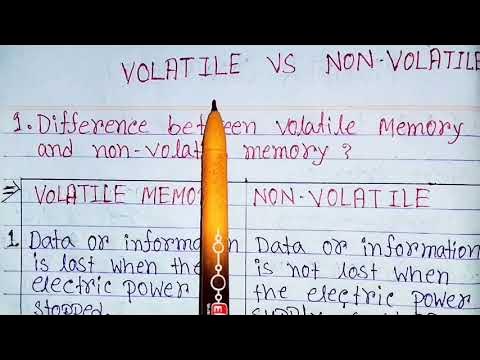 VOLATILE VS NON-VOLATILE
1. Difference between volatile Memory
and non-volatile memory ?
⇒ VOLATILE MEMORY NON-VOLATILE
1. Data or information
is lost when the
electric power
stopped.
Data or information
is not lost when
the electric power